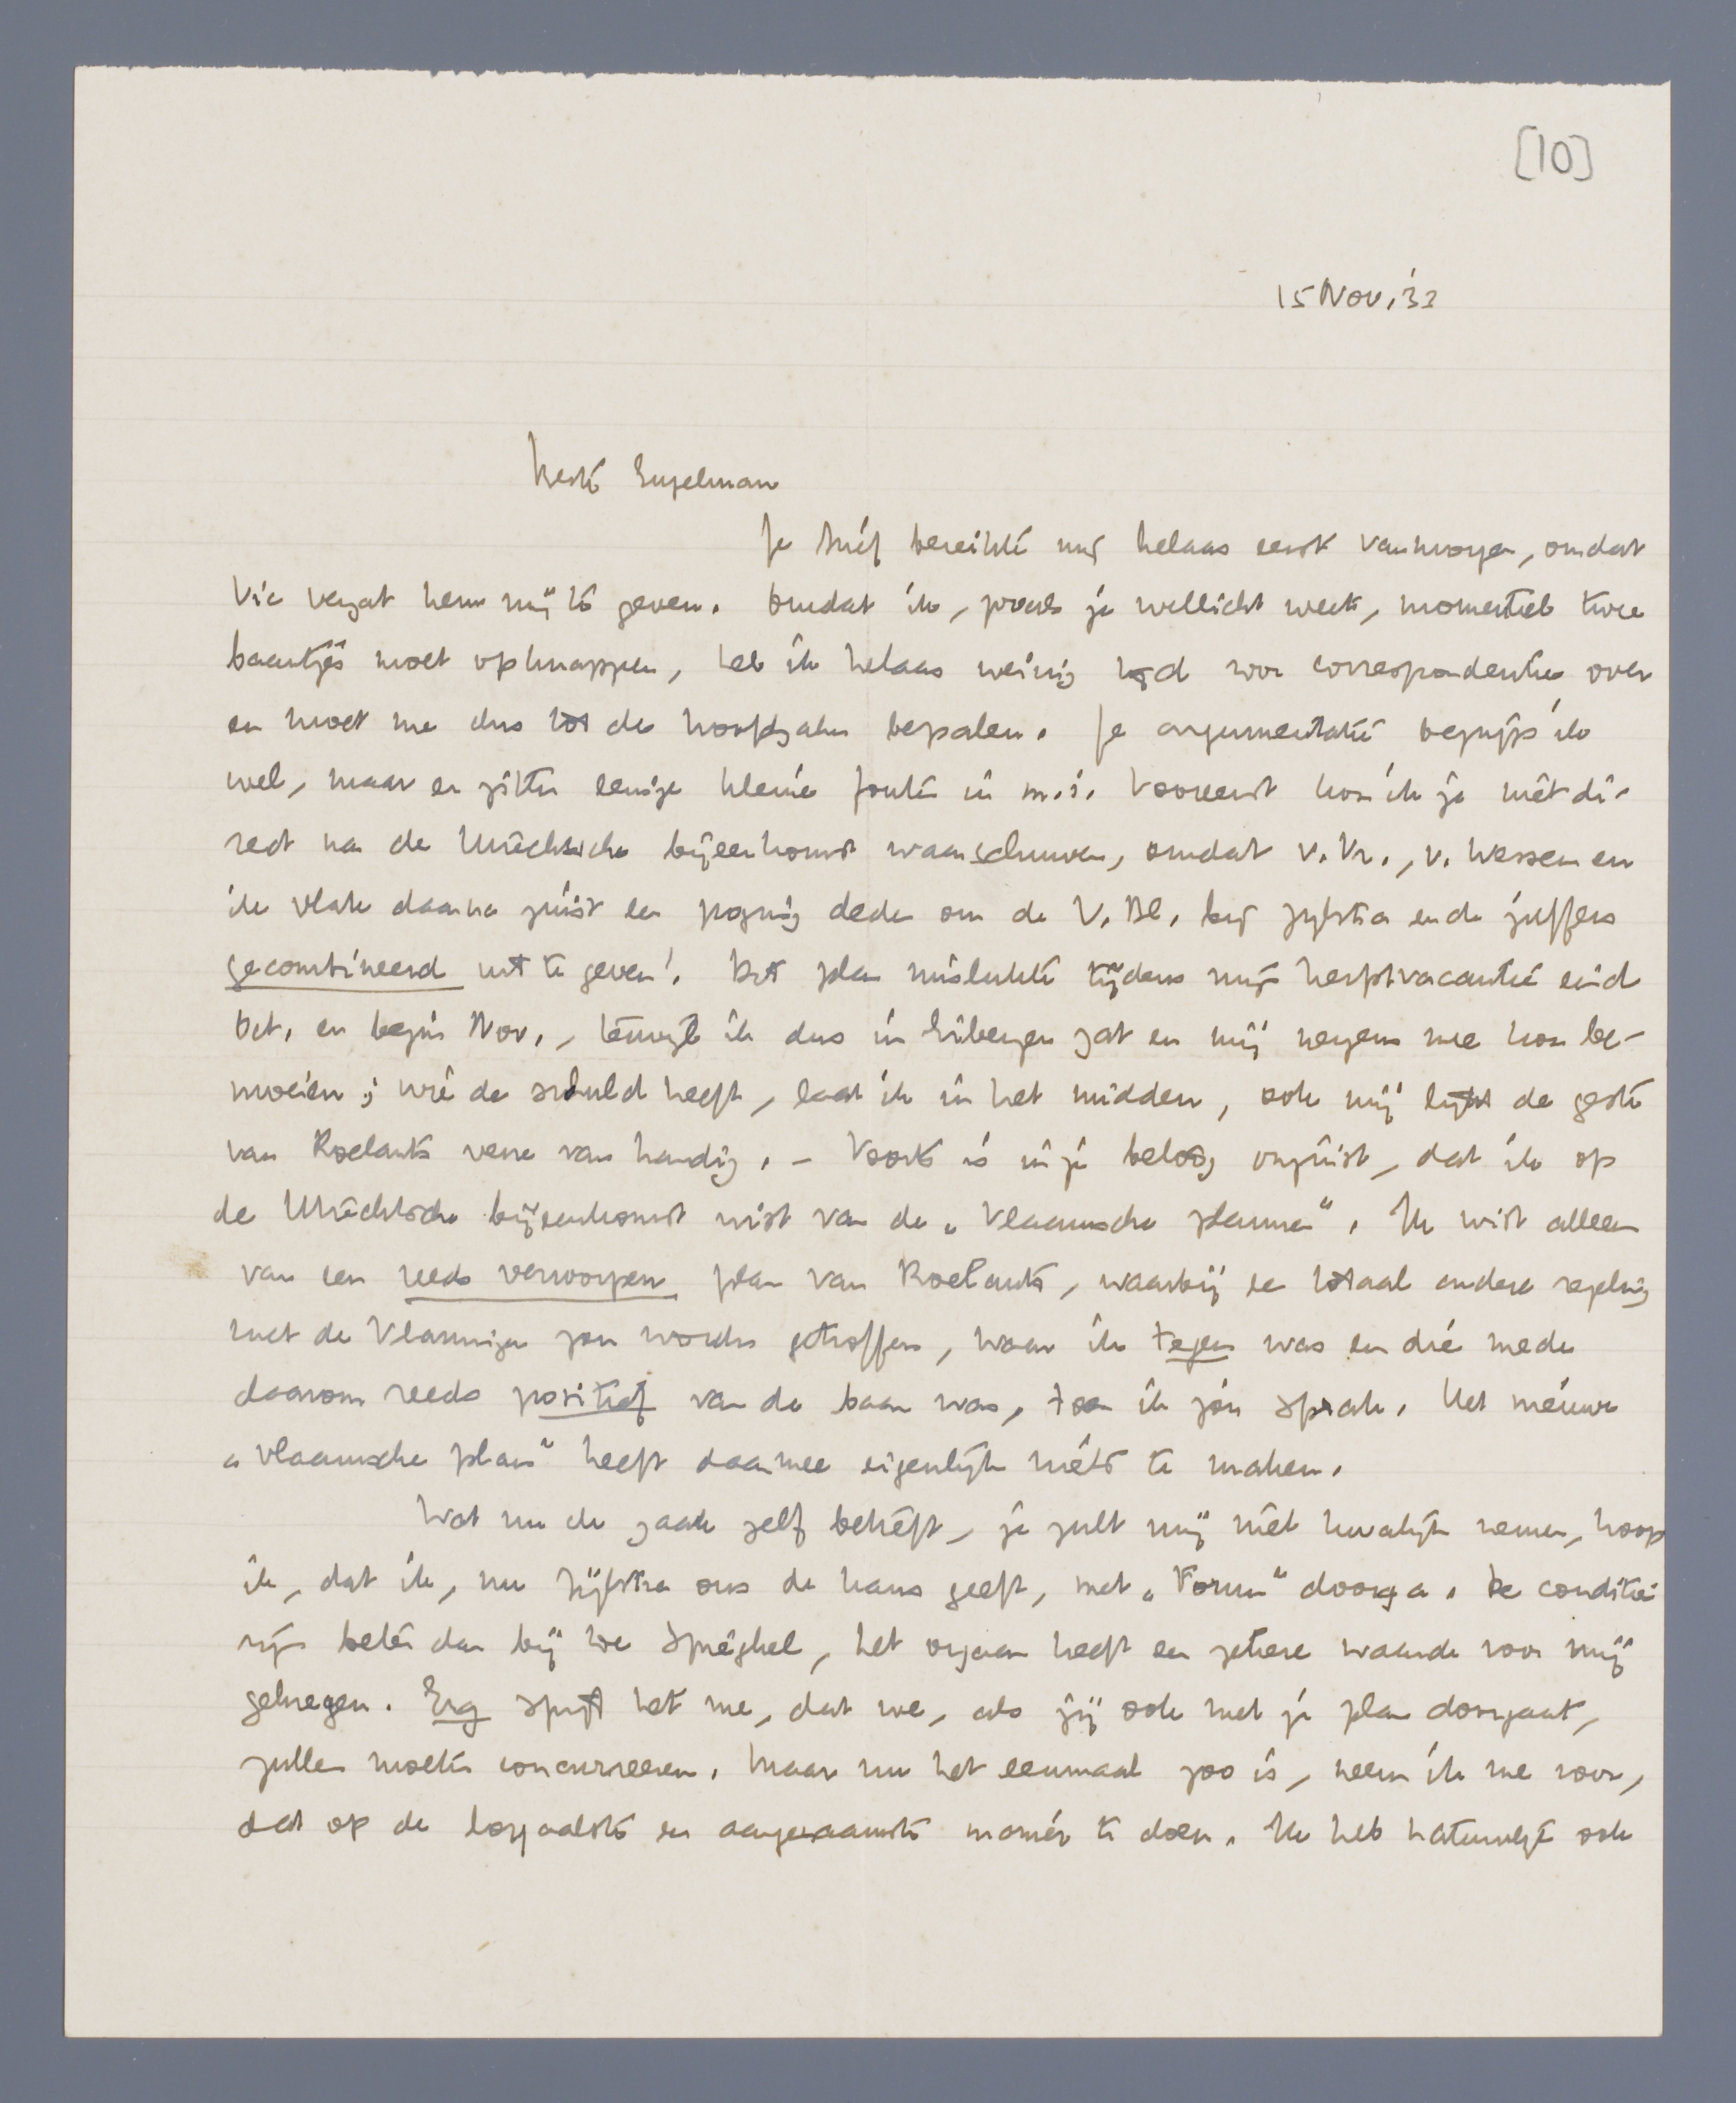 [10]
15 Nov. '33
Beste Engelman
Je brief bereikte mij helaas eerst vanmorgen, omdat
Vic vergat hem mij te geven. Omdat ik, zooals je wellicht weet, momenteel twee
baantjes moet opknappen, heb ik helaas weinig tijd voor correspondentie over
en moet me dus tot de hoofdzaken bepalen. Je argumentatie begrijp ik
wel, maar er zitten eenige kleine fouten in m.i. Vooreerst kon ik je niet di-
rect na de Utrechtsche bijeenkomst waarschuwen, omdat v. Vr., v. Wessem en
ik vlak daarna juist een poging deden om de V. Bl. bij Zijlstra en de juffers
gecombineerd uit te geven! Dit plan mislukte tijdens mijn herfstvacantie eind
Oct. en begin Nov., terwijl ik dus in Eibergen zat en mij nergens mee kon be-
moeien; wie de schuld heeft, laat ik in het midden, ook mij lijkt de geste
van Roelants verre van handig. – Voorts is in je betoog onjuist, dat ik op
de Utrechtsche bijeenkomst wist van de „Vlaamsche plannen". Ik wist alleen
van een reeds verworpen plan van Roelants, waarbij een totaal andere regeling
met de Vlamingen zou worden getroffen, waar ik tegen was en die mede
daarom reeds positief van de baan was, toen ik jou sprak. Het nieuwe
„Vlaamsche plan" heeft daarmee eigenlijk niets te maken.
Wat nu de zaak zelf betreft, je zult mij niet kwalijk nemen, hoop
ik, dat ik, nu Zijlstra ons de kans geeft, met „Forum" doorga. De condities
zijn beter dan bij De Spieghel, het orgaan heeft een zekere waarde voor mij
gekregen. Erg spijt het me, dat we, als jij ook met je plan doorgaat,
zullen moeten concurreeren. Maar nu het eenmaal zoo is, neem ik me voor,
dat op de loyaalste en aangenaamste manier te doen. Ik heb natuurlijk ook